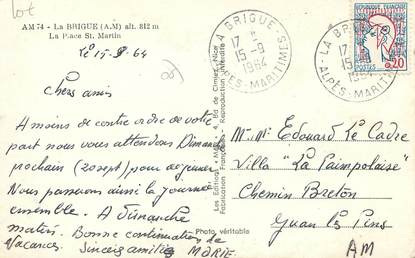 lot
AM 74 - LA BRIGUE (A.M) alt. 812 m
La Place St. Martin
le 15-9-64
06
Chers amis
A moins de contre ordre de votre
part nous vous attendons Dimanche
prochain (20 sept) pour déjeuner
Nous passerons ainsi la journée
ensemble. A Dimanche
matin. Bonne continuation de
Vacances. Sincères amitiés MARIE.
Les Editions "MAR", 4, Bd de Cimiez, Nice
Fabrication Française Reproduction Interdite
Photo. véritable
LA BRIGUE
17 H
15-9
1964
ALPES-MARITIMES
LA BRIGUE
17
15-9
1964
ALPES-MARITIMES
REPUBLIQUE FRANÇAISE
POSTES
0,20
M. Mme Edouard Le Cadre
Villa "La Paimpolaise"
Chemin Breton
Juan les Pins
AM